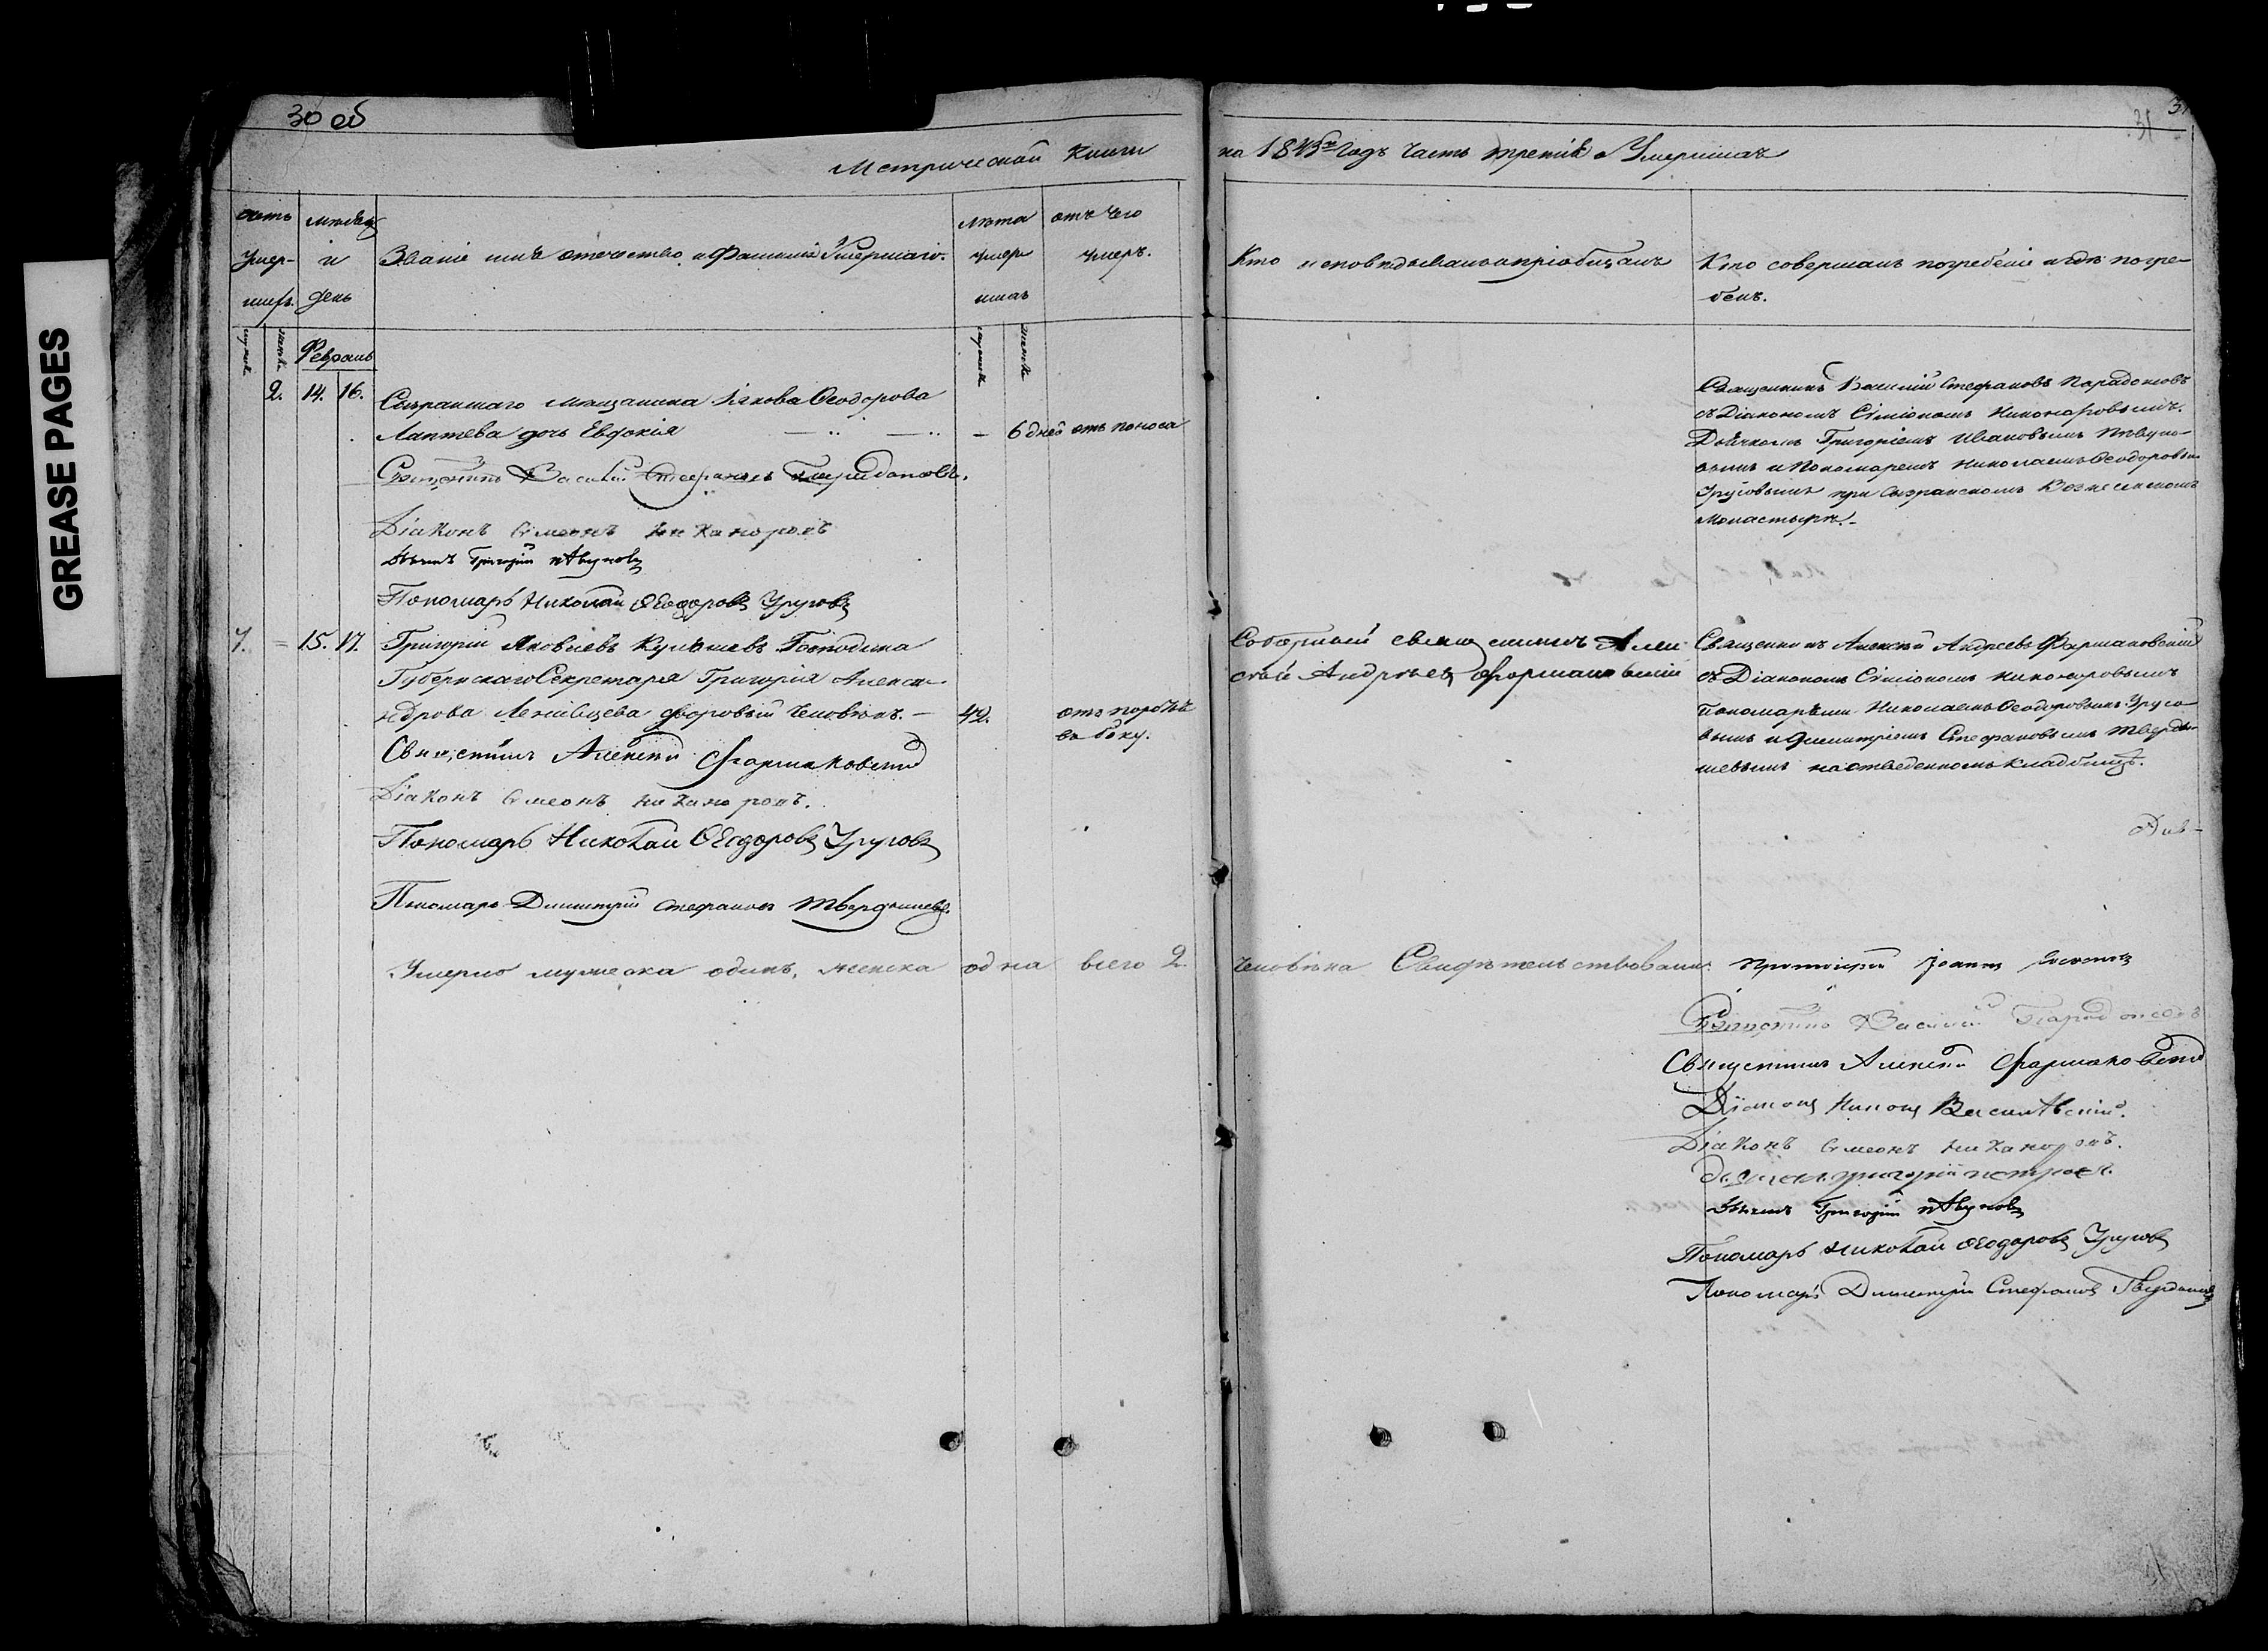 GREASE PAGES
30 об
31
31
Метрической книги
на 184 годъ Часть третія о Умершихъ
умер-
шихъ
мѣсяцъ
и
день
Званіе имя отечество и Фамилія Умершаго.
лѣта
умер
шихъ
отъ чего
умеръ.
Кто исповѣдывалъ и пріобщалъ
Кто совершалъ погребеніе и гдѣ погре-
бенъ.
Февраль
2. 14. 16.
Сызранскаго мѣщанина Іакова Ѳеодорова
Лаптева дочь Евдокія — 6 дней отъ поноса
Священникъ Василій Стефановъ Парадоксовъ
съ Діакономъ Сѵмеономъ Никаноровымъ.
Дьячкомъ Григоріемъ Ивановымъ Пѣвуно-
вымъ и Пономаремъ Николаемъ Ѳеодоровым
Урусовымъ при Сызранскомъ Вознесенскомъ
Монастырѣ.
Священникъ Василій Стефановъ Парадоксовъ.
Діаконъ Сѵмеонъ Никаноровъ
Дьячекъ Григорій Пѣвуновъ
Пономарь Николай Ѳеодоровъ Урусовъ
15. 17. Григорій Яковлевъ Господина
Губернскаго Секретаря Григорія Алекса-
ндрова дворовый человѣкъ. — 42. отъ
въ боку.
Соборный священникъ Алек
сѣй Андреевъ Фармаковскій
Священникъ Алексѣй Андреевъ Фармаковскій
съ Діакономъ Сѵмеономъ Никаноровымъ
Пономарями Николаемъ Ѳеодоровымъ Урусо
вымъ и Димитріемъ Стефановымъ Тверды-
шевымъ на отведенномъ кладбищѣ.
Священникъ Алексѣй Фармаковскій
Діаконъ Сѵмеонъ Никаноровъ.
Пономарь Николай Ѳеодоровъ Урусовъ
Пономарь Димитрій Стефановъ Твердышевъ.
Умерло мужеска одинъ, женска одна всего 2.
человѣка Свидѣтельствовали: Протоіерей Іоаннъ
Священникъ Василій Парадоксовъ
Священникъ Алексѣй Фармаковскій
Діаконъ Василевскій.
Діаконъ Сѵмеонъ Никаноровъ.
Григорій Петровъ.
Дьячекъ Григорій Пѣвуновъ
Пономарь Николай Ѳеодоровъ Урусовъ
Пономарь Димитрій Стефановъ Твердышевъ